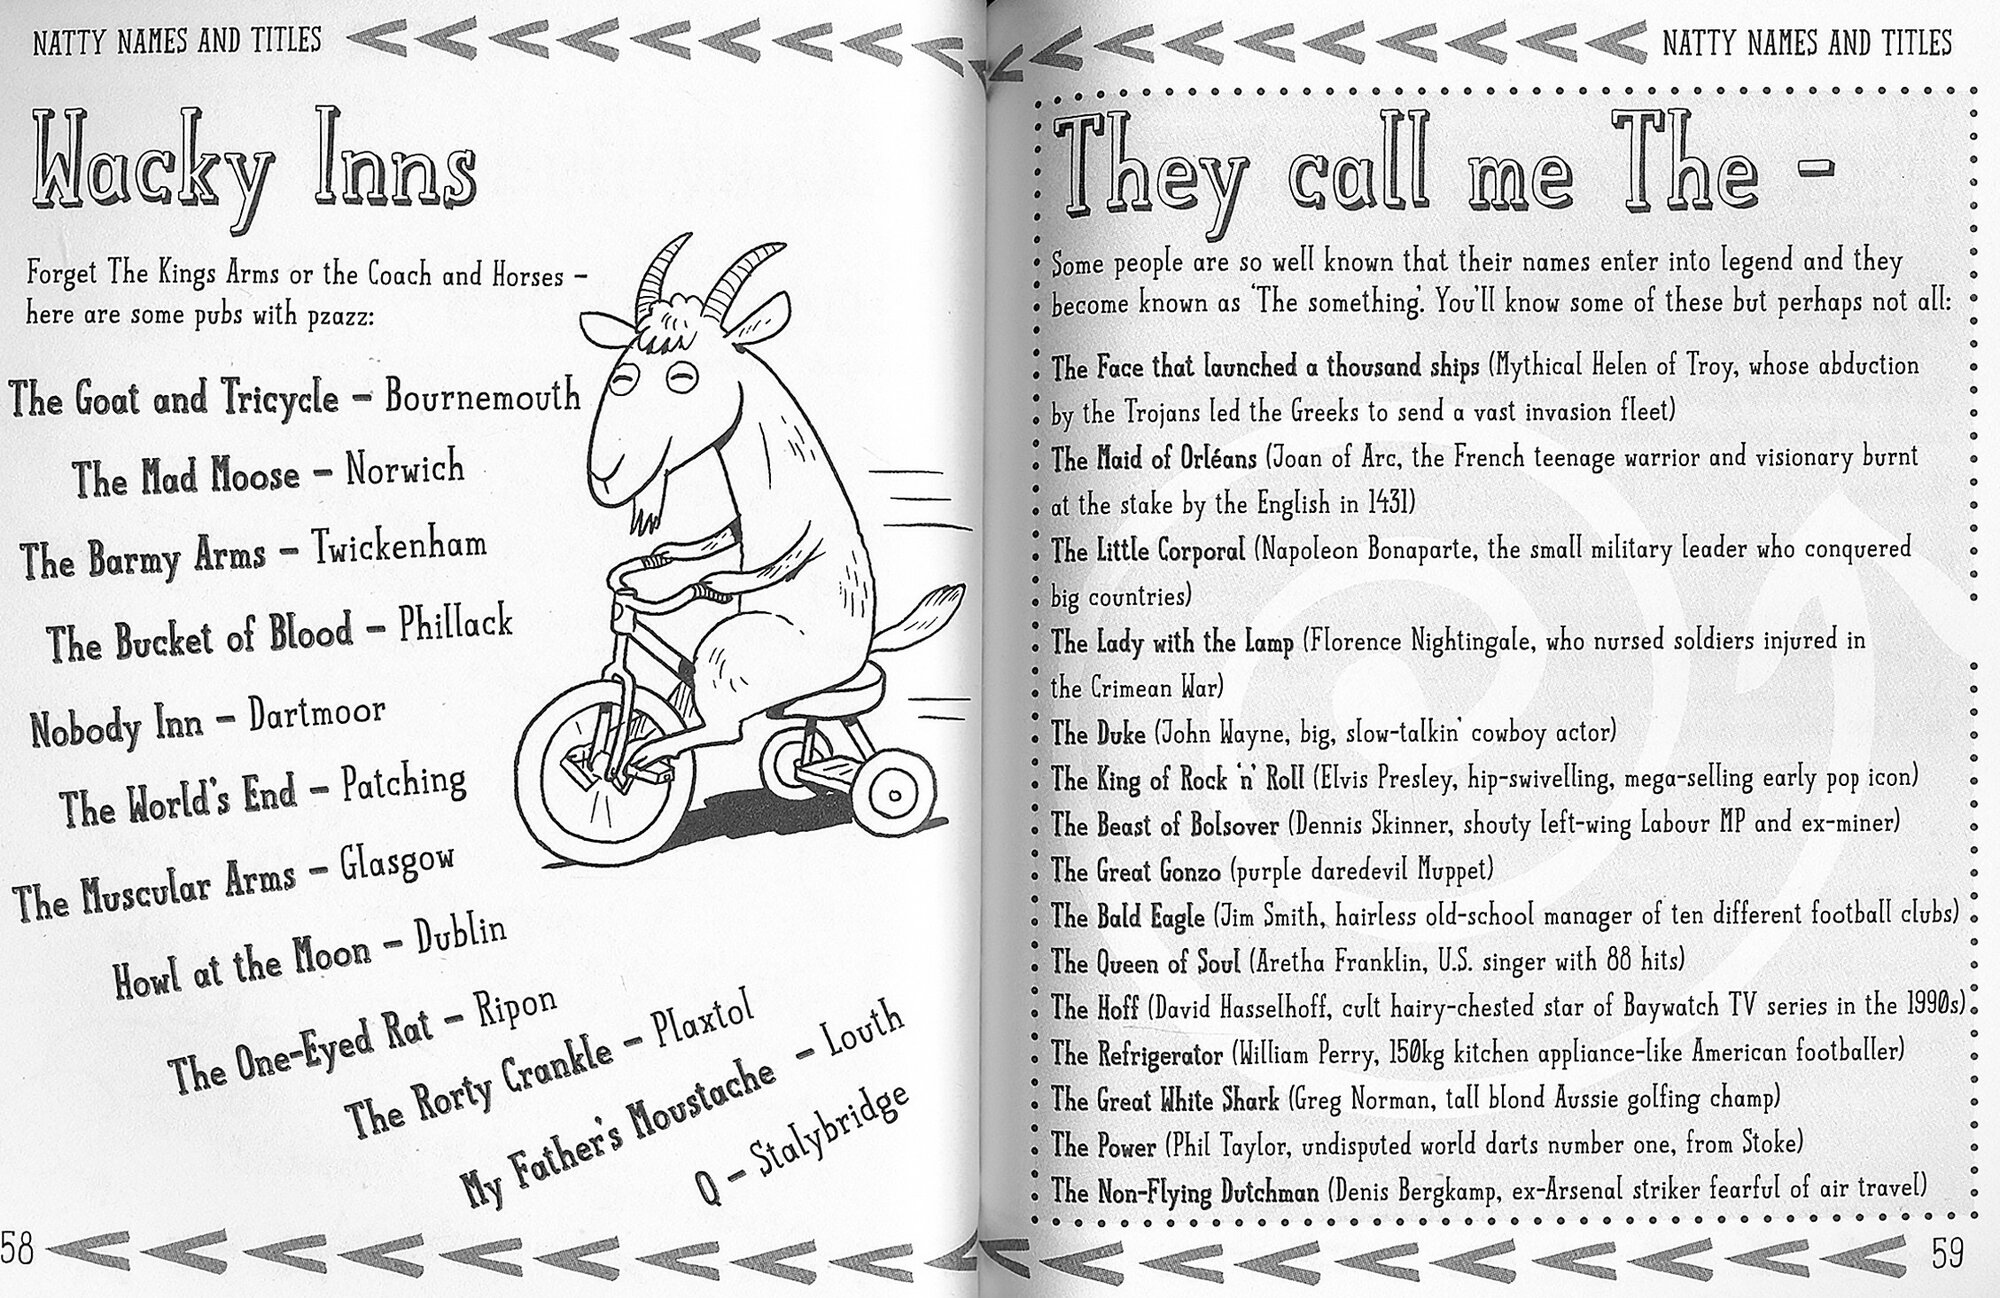 NATTY NAMES AND TITLES
Wacky Inns
Forget The Kings Arms or the Coach and Horses –
here are some pubs with pzazz:
The Goat and Tricycle – Bournemouth
The Mad Moose – Norwich
The Barmy Arms – Twickenham
The Bucket of Blood – Phillack
Nobody Inn – Dartmoor
The World's End – Patching
The Muscular Arms – Glasgow
Howl at the Moon – Dublin
The One-Eyed Rat – Ripon
The Rorty Crankle – Plaxtol
My Father's Moustache – Louth
Q – Stalybridge
58
NATTY NAMES AND TITLES
They call me The –
Some people are so well known that their names enter into legend and they
become known as 'The something'. You'll know some of these but perhaps not all:
The Face that launched a thousand ships (Mythical Helen of Troy, whose abduction
by the Trojans led the Greeks to send a vast invasion fleet)
The Maid of Orléans (Joan of Arc, the French teenage warrior and visionary burnt
at the stake by the English in 1431)
The Little Corporal (Napoleon Bonaparte, the small military leader who conquered
big countries)
The Lady with the Lamp (Florence Nightingale, who nursed soldiers injured in
the Crimean War)
The Duke (John Wayne, big, slow-talkin' cowboy actor)
The King of Rock 'n' Roll (Elvis Presley, hip-swivelling, mega-selling early pop icon)
The Beast of Bolsover (Dennis Skinner, shouty left-wing Labour MP and ex-miner)
The Great Gonzo (purple daredevil Muppet)
The Bald Eagle (Jim Smith, hairless old-school manager of ten different football clubs)
The Queen of Soul (Aretha Franklin, U.S. singer with 88 hits)
The Hoff (David Hasselhoff, cult hairy-chested star of Baywatch TV series in the 1990s)
The Refrigerator (William Perry, 150kg kitchen appliance-like American footballer)
The Great White Shark (Greg Norman, tall blond Aussie golfing champ)
The Power (Phil Taylor, undisputed world darts number one, from Stoke)
The Non-Flying Dutchman (Denis Bergkamp, ex-Arsenal striker fearful of air travel)
59